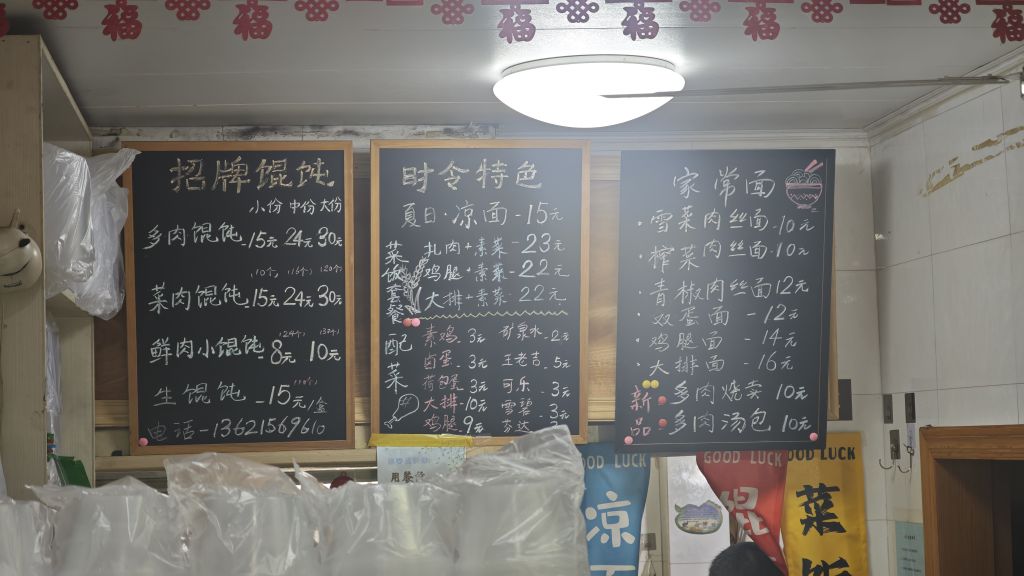 福 福 福 福 福 福
招牌馄饨
小份 中份 大份
多肉馄饨 15元 24元 30元
(10个) (16个) (20个)
菜肉馄饨 15元 24元 30元
鲜肉小馄饨 8元 10元
生馄饨 - 15元/盒
电话 - 13621569610
时令特色
夏日·凉面 - 15元
菜饭套餐
扎肉+素菜 - 23元
鸡腿+素菜 - 22元
大排+素菜 22元
配菜
素鸡 3元 矿泉水 - 2元
卤蛋 - 3元 王老吉 - 5元
荷包蛋 - 3元 可乐 - 3元
大排 - 10元 雪碧
鸡腿 9元 芬达 - 3元
家常面
·雪菜肉丝面 10元
·榨菜肉丝面 10元
·青椒肉丝面 12元
·双蛋面 - 12元
·鸡腿面 - 14元
·大排面 - 16元
新品
多肉烧卖 10元
多肉汤包 10元
用餐
OOD LUCK
凉
GOOD LUCK
馄
OOD LUCK
菜饭